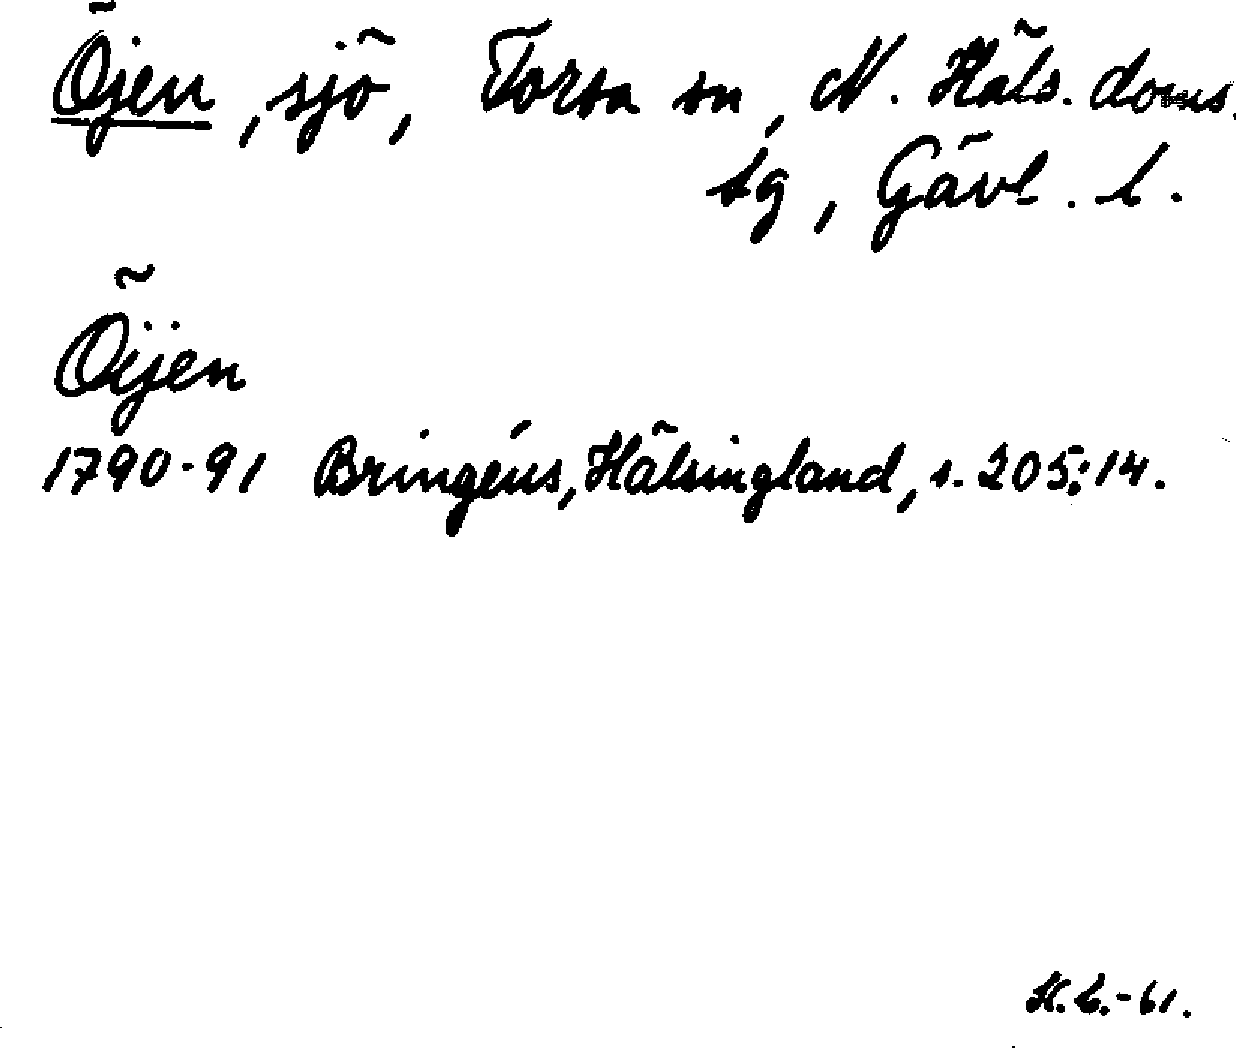 Öjen, sjö, Torsa sn, N. Häls. doms.
sg, Gävl. l.
Öijen
1790-91 Bringéus, Hälsingland, s. 205:14.
K.L.-61.